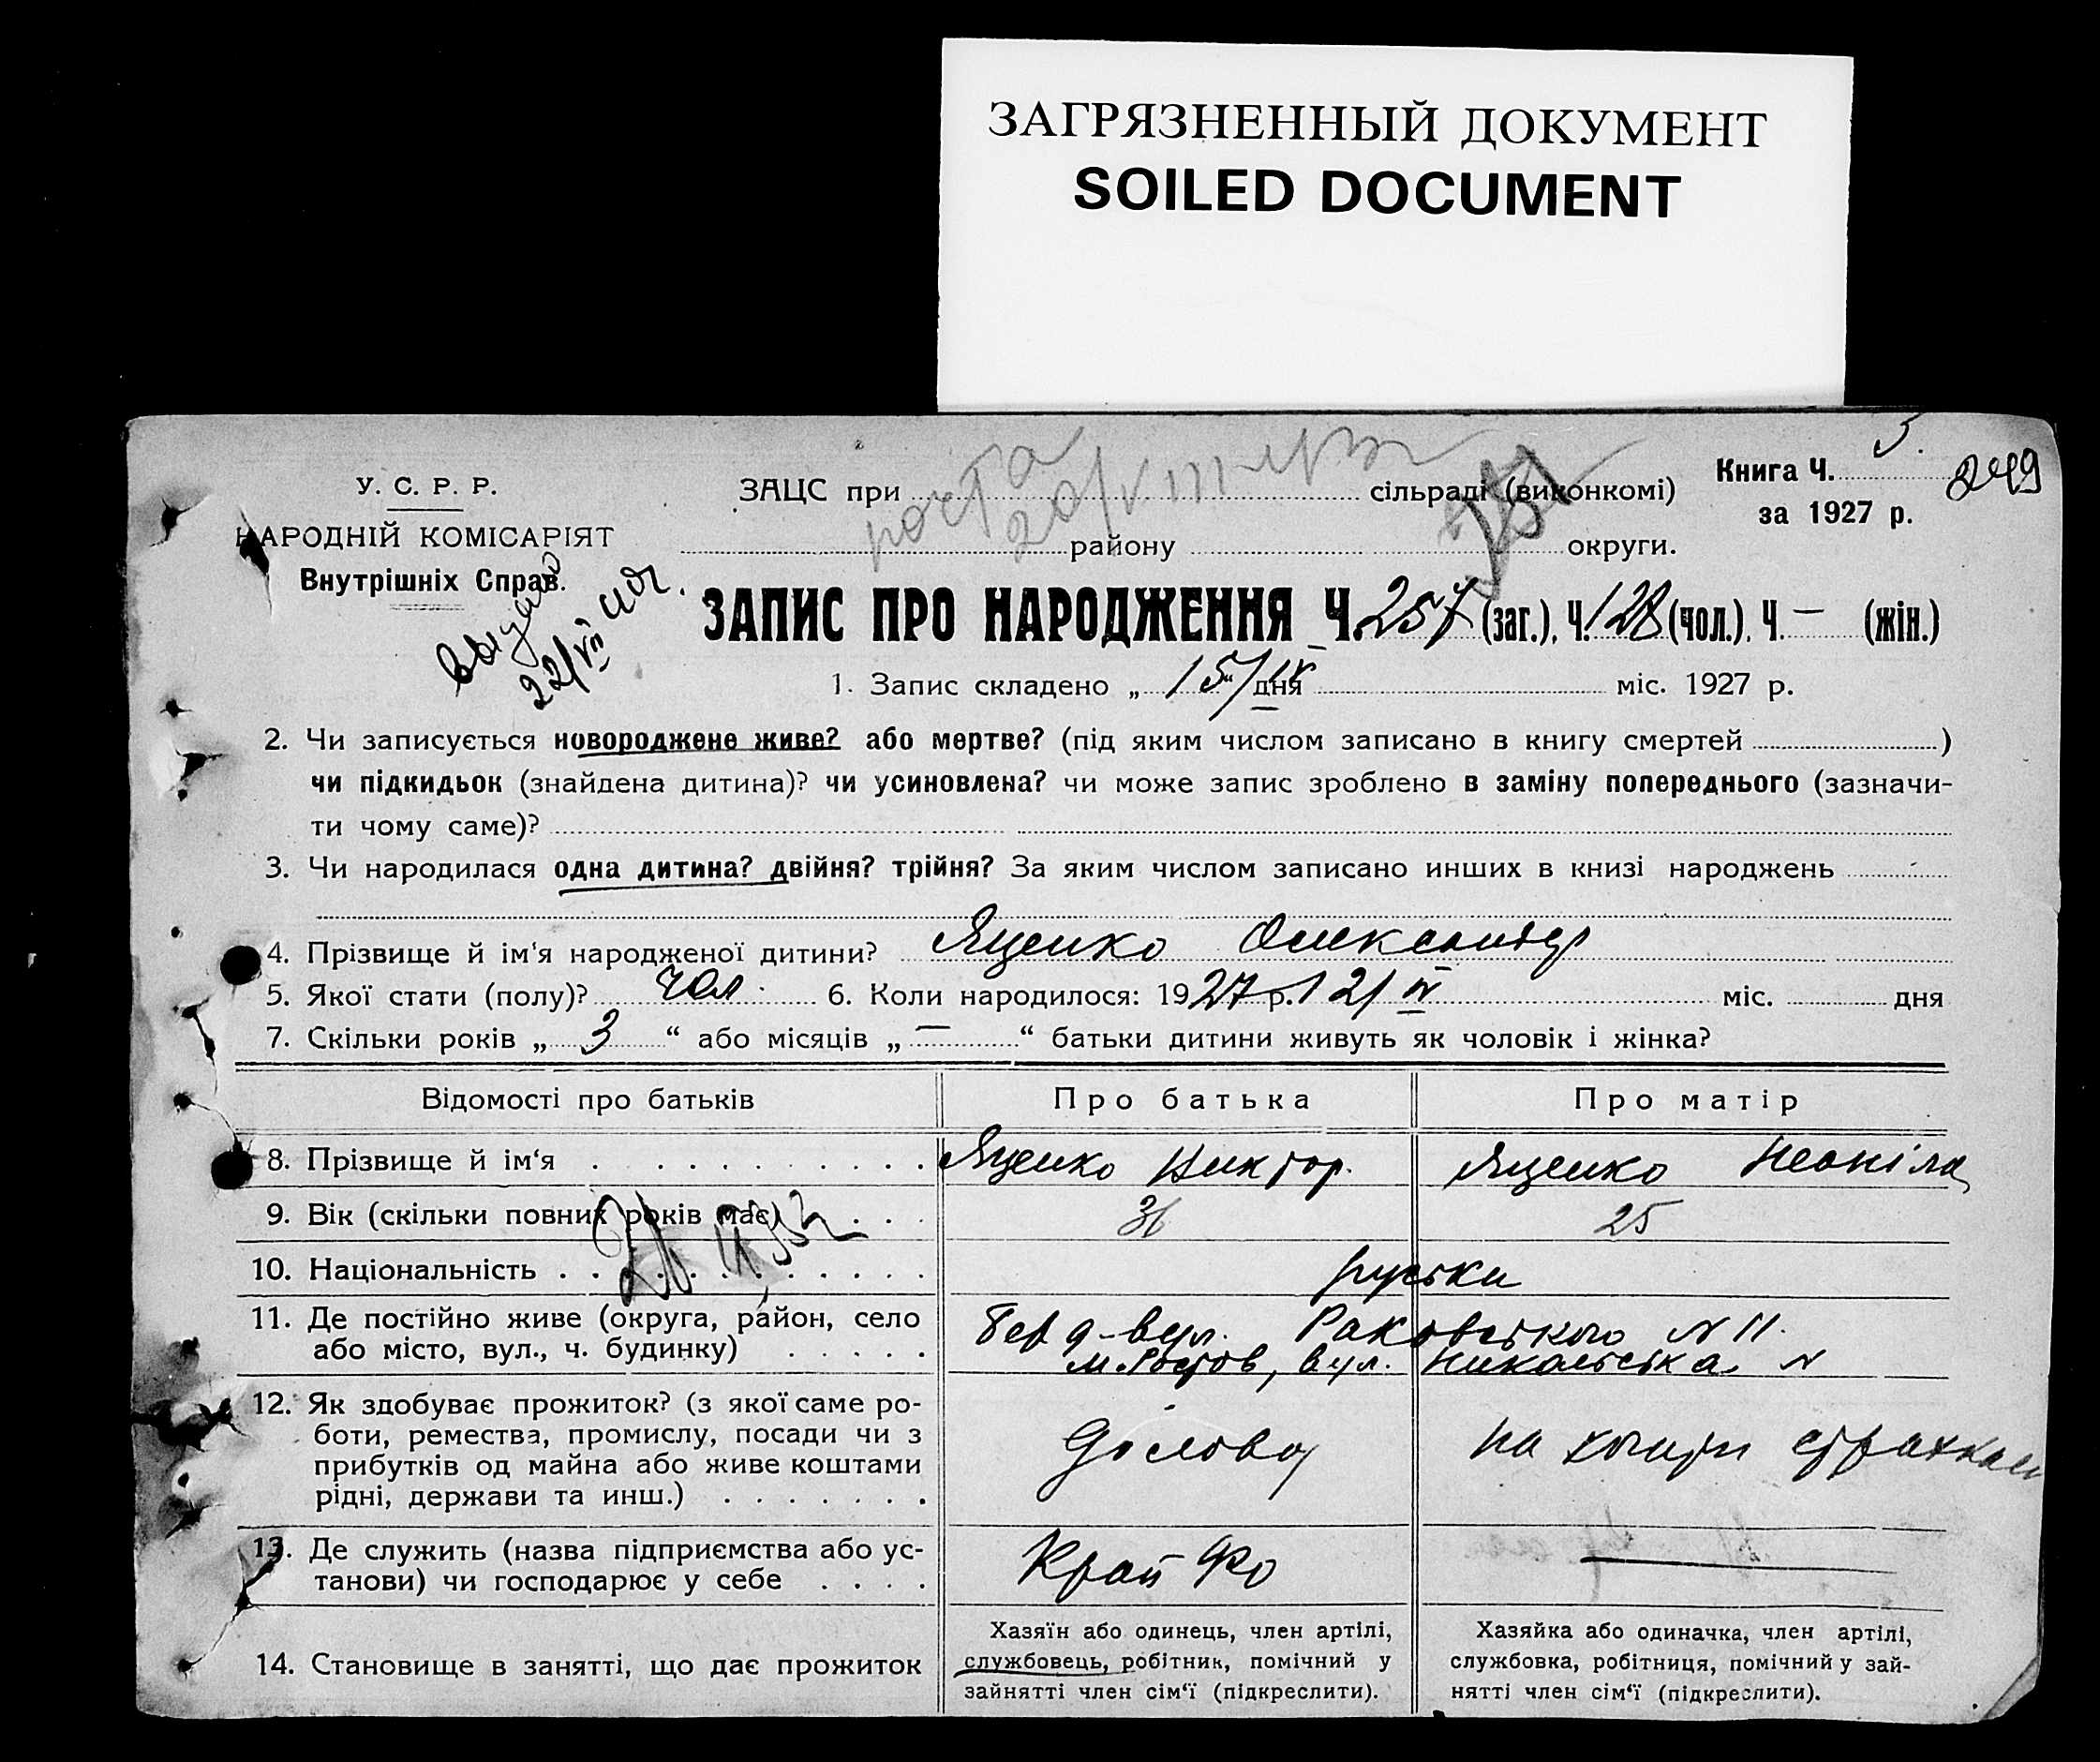 ЗАГРЯЗНЕННЫЙ ДОКУМЕНТ
SOILED DOCUMENT
У. С. Р. Р.
НАРОДНІЙ КОМІСАРІЯТ
Внутрішніх Справ.
22/VII
ЗАЦС при сільраді (виконкомі)
району округи.
Книга Ч. 249
за 1927 р.
ЗАПИС ПРО НАРОДЖЕННЯ Ч. 257 (заг.), Ч. 128 (чол.), Ч. — (жін.)
1. Запис складено „ 15/IV “ дня міс. 1927 р.
2. Чи записується новороджене живе? або мертве? (під яким числом записано в книгу смертей )
чи підкидьок (знайдена дитина)? чи усиновлена? чи може запис зроблено в заміну попереднього (зазначи-
ти чому саме)?
3. Чи народилася одна дитина? двійня? трійня? За яким числом записано инших в книзі народжень
4. Прізвище й ім‘я народженої дитини? Яценко Олександр
5. Якої стати (полу)? чол. 6. Коли народилося: 1927 р. 12/IV міс. дня
7. Скільки років „ 3 “ або місяців „ — “ батьки дитини живуть як чоловік і жінка?
Відомості про батьків Про батька Про матір
8. Прізвище й ім‘я Яценко Виктор. Яценко Неоніла
9. Вік (скільки повних років має) 36 25
10. Національність руськи
11. Де постійно живе (округа, район, село або місто, вул., ч. будинку)
вул. Раковського N 11.
м. Ростов, вул. Никольська N
12. Як здобуває прожиток? (з якої саме ро-
боти, ремества, промислу, посади чи з
прибутків од майна або живе коштами
рідні, держави та инш.)
Діловод
на
13. Де служить (назва підприємства або ус-
танови) чи господарює у себе
Край Фо —
14. Становище в занятті, що дає прожиток
Хазяїн або одинець, член артілі,
службовець, робітник, помічний у
зайнятті член сім‘ї (підкреслити).
Хазяйка або одиначка, член артілі,
службовка, робітниця, помічний у зай-
нятті член сім‘ї (підкреслити).